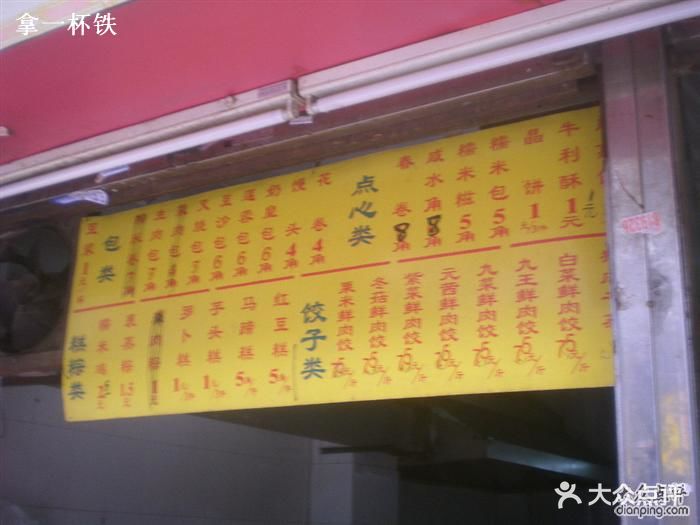 拿一杯铁
点心类
牛利酥1元
品饼1
糯米包5角
糯米糍5角
咸水角8角
春卷8角
包类
花卷4角
馒头4角
奶皇包6角
莲蓉包6角
豆沙包6角
叉烧包7角
生肉包7角
豆浆1元
饺子类
白菜鲜肉饺
九王鲜肉饺
九菜鲜肉饺
元西鲜肉饺
紫菜鲜肉饺
冬菇鲜肉饺
粟米鲜肉饺
糕粽类
红豆糕5角
马蹄糕5角
芋头糕1元
萝卜糕1元
肉粽1元
裹蒸粽1.5元
糯米鸡
大众点评
dianping.com